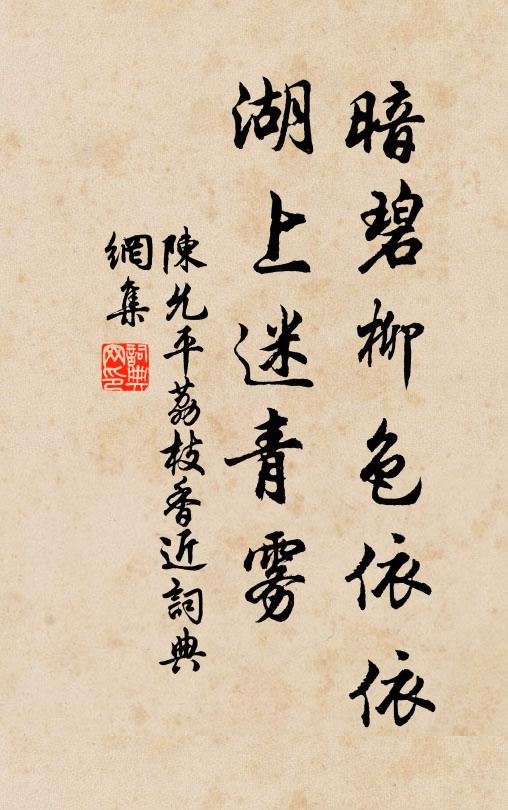 暗碧柳色依依
湖上迷青雾
陳允平荔枝香近詞典
網集
詞典
网印